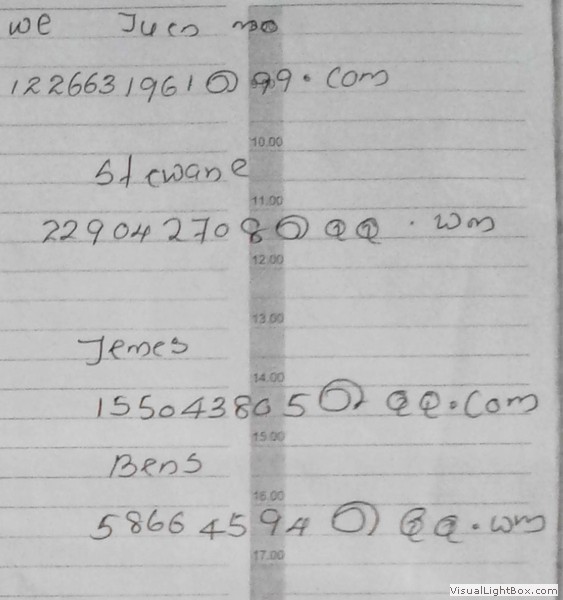 we Juen mo
1226631961@99.com
10.00
Stewane
11.00
2290427088@QQ.com
12.00
13.00
Jemes
14.00
1550438805@QQ.com
15.00
Bens
16.00
58664594@QQ.com
17.00
VisualLightBox.com